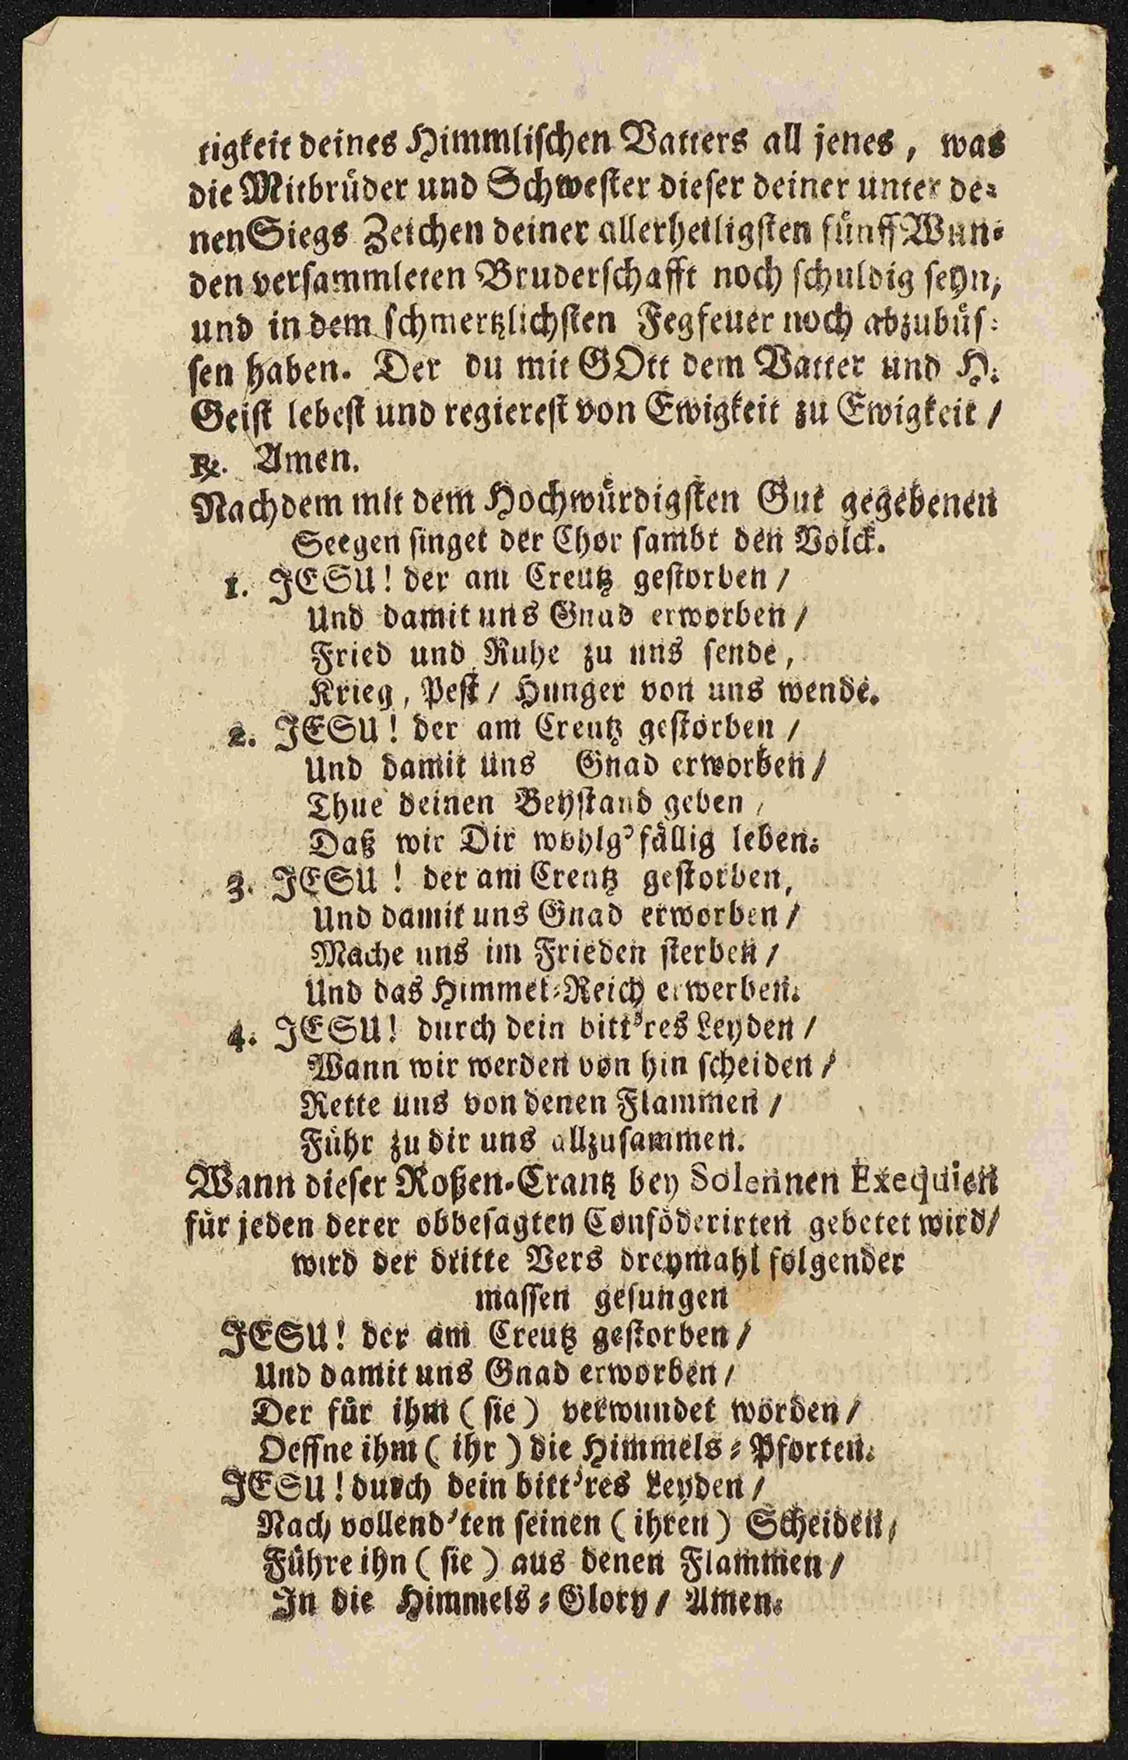 tigkeit deines Himmlischen Vatters all jenes, was
die Mitbrüder und Schwester dieser deiner unter de-
nen Siegs Zeichen deiner allerheiligsten fünff Wun-
den versammleten Bruderschafft noch schuldig seyn,
und in dem schmertzlichsten Fegfeuer noch abzubüs-
sen haben. Der du mit GOtt dem Vatter und H.
Geist lebest und regierest von Ewigkeit zu Ewigkeit /
℟. Amen.
Nachdem mit dem Hochwürdigsten Gut gegebenen
Seegen singet der Chor sambt den Volck.
1. JESU! der am Creutz gestorben /
Und damit uns Gnad erworben /
Fried und Ruhe zu uns sende,
Krieg, Pest / Hunger von uns wende.
2. JESU! der am Creutz gestorben /
Und damit uns Gnad erworben /
Thue deinen Beystand geben,
Daß wir Dir wohlg'fällig leben.
3. JESU! der am Creutz gestorben,
Und damit uns Gnad erworben /
Mache uns im Frieden sterben /
Und das Himmel-Reich erwerben.
4. JESU! durch dein bitt'res Leyden /
Wann wir werden von hin scheiden /
Rette uns von denen Flammen /
Führ zu dir uns allzusammen.
Wann dieser Roßen-Crantz bey Solennen Exequien
für jeden derer obbesagten Conföderirten gebetet wird /
wird der dritte Vers dreymahl folgender
massen gesungen
JESU! der am Creutz gestorben /
Und damit uns Gnad erworben /
Der für ihm (sie) verwundet worden /
Oeffne ihm (ihr) die Himmels-Pforten.
JESU! durch dein bitt'res Leyden /
Nach vollend'ten seinen (ihren) Scheiden /
Führe ihn (sie) aus denen Flammen /
In die Himmels-Glory / Amen.